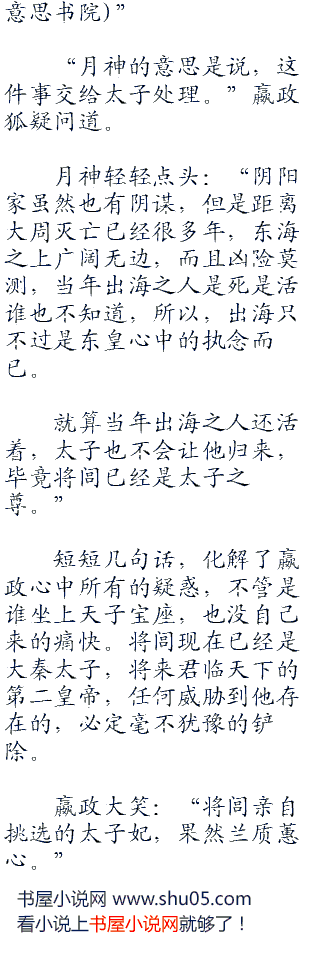 意思书院)”
“月神的意思是说，这
件事交给太子处理。”嬴政
狐疑问道。
月神轻轻点头：“阴阳
家虽然也有阴谋，但是距离
大周灭亡已经很多年，东海
之上广阔无边，而且凶险莫
测，当年出海之人是死是活
谁也不知道，所以，出海只
不过是东皇心中的执念而
已。
就算当年出海之人还活
着，太子也不会让他归来，
毕竟将闾已经是太子之
尊。”
短短几句话，化解了嬴
政心中所有的疑惑，不管是
谁坐上天子宝座，也没自己
来的痛快。将闾现在已经是
大秦太子，将来君临天下的
第二皇帝，任何威胁到他存
在的，必定毫不犹豫的铲
除。
嬴政大笑：“将闾亲自
挑选的太子妃，果然兰质蕙
心。”
书屋小说网 www.shu05.com
看小说上书屋小说网就够了！